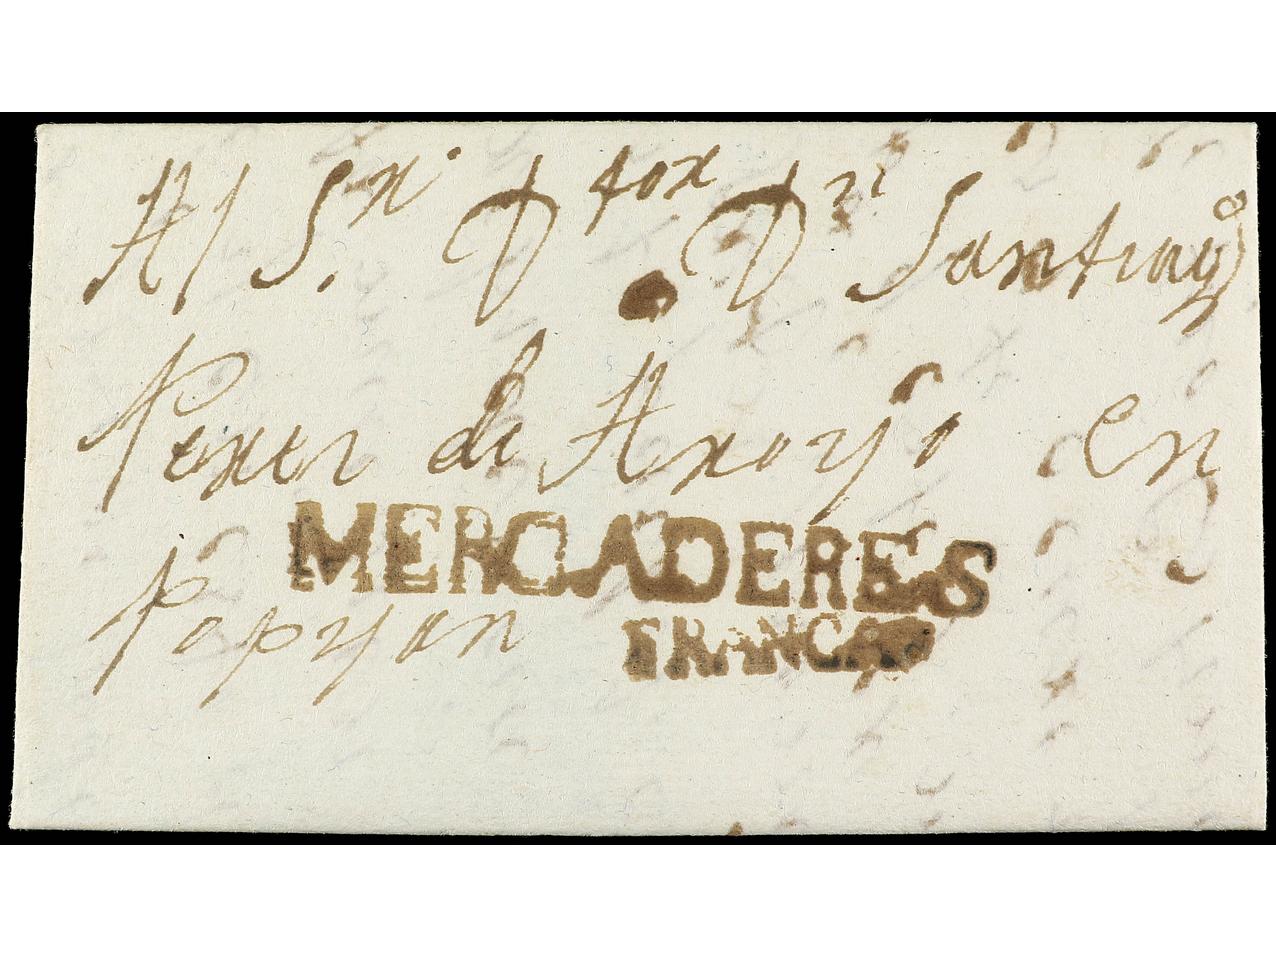 Al Sr. Dtor Dn Santiago
Perez de Arroyo en
MERCADERES
Popayan
FRANCA